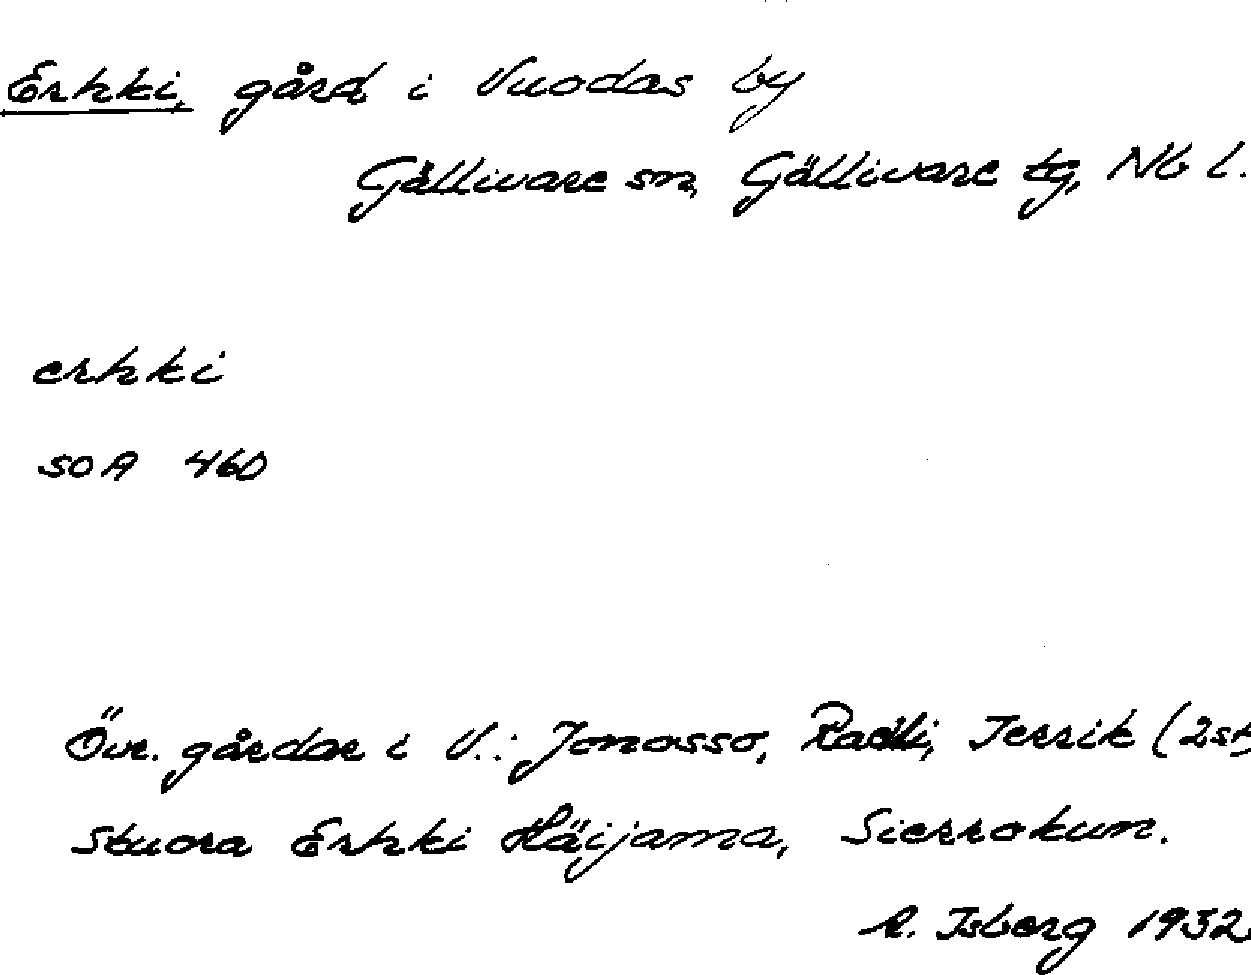 Erkki, gård i Vuodas by
Gällivare sn, Gällivare tg, Nb l.
erkki
SOA 460
Övr. gårdar i V.: Jonasso, Jerrik (2st)
Stuora Erkki Häijama, Sierrokum.
R. Isberg 1932.